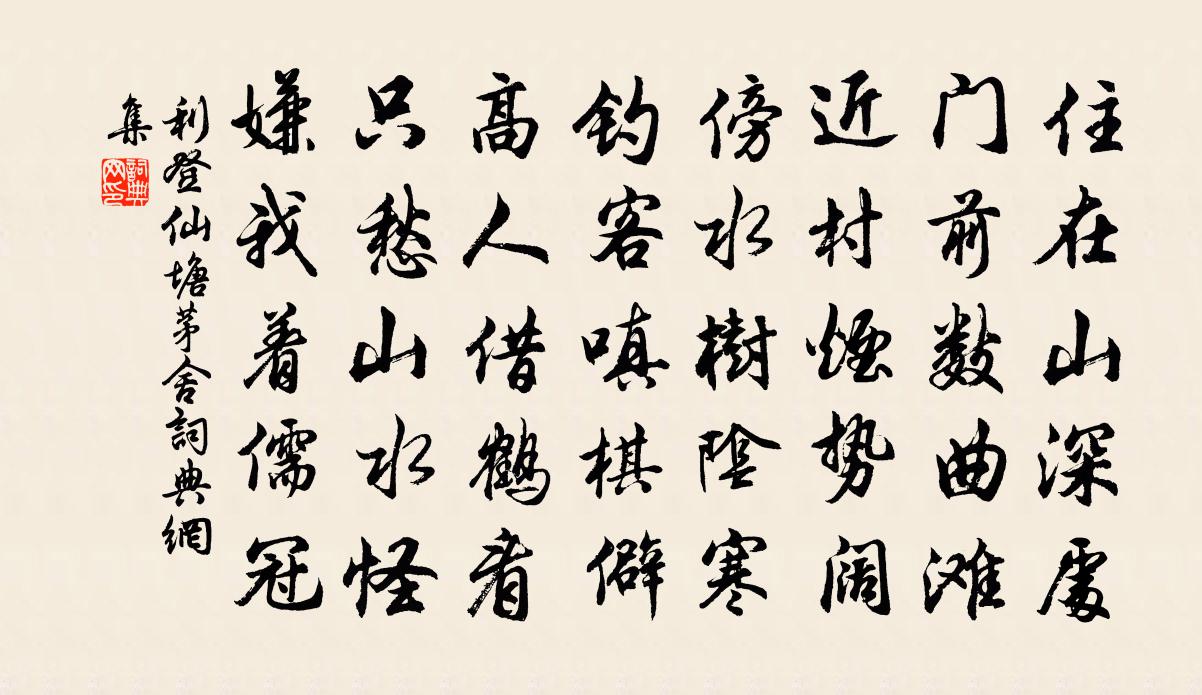 住在山深處
门前数曲滩
近村煙势阔
傍水樹陰寒
钓客嗔棋僻
高人借鶴看
只愁山水怪
嫌我着儒冠
利登仙塘茅舍詞典網
集
詞典
网印